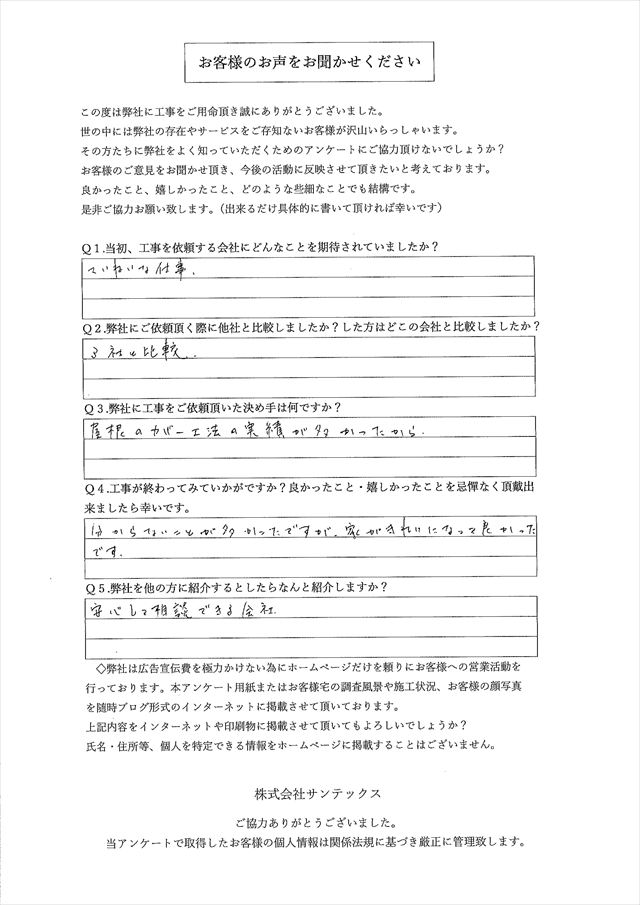 お客様のお声をお聞かせください
この度は弊社に工事をご用命頂き誠にありがとうございました。
世の中には弊社の存在やサービスをご存知ないお客様が沢山いらっしゃいます。
その方たちに弊社をよく知っていただくためのアンケートにご協力頂けないでしょうか？
お客様のご意見をお聞かせ頂き、今後の活動に反映させて頂きたいと考えております。
良かったこと、嬉しかったこと、どのような些細なことでも結構です。
是非ご協力お願い致します。（出来るだけ具体的に書いて頂ければ幸いです）
Ｑ１.当初、工事を依頼する会社にどんなことを期待されていましたか？
ていねいな仕事.
Ｑ２.弊社にご依頼頂く際に他社と比較しましたか？した方はどこの会社と比較しましたか？
3社と比較.
Ｑ３.弊社に工事をご依頼頂いた決め手は何ですか？
屋根のカバー工法の実績が多かったから.
Ｑ４.工事が終わってみていかがですか？良かったこと・嬉しかったことを忌憚なく頂戴出
来ましたら幸いです。
分からないことが多かったですが、家がきれいになって良かった
です.
Ｑ５.弊社を他の方に紹介するとしたらなんと紹介しますか？
安心して相談できる会社.
◇弊社は広告宣伝費を極力かけない為にホームページだけを頼りにお客様への営業活動を
行っております。本アンケート用紙またはお客様宅の調査風景や施工状況、お客様の顔写真
を随時ブログ形式のインターネットに掲載させて頂いております。
上記内容をインターネットや印刷物に掲載させて頂いてもよろしいでしょうか？
氏名・住所等、個人を特定できる情報をホームページに掲載することはございません。
株式会社サンテックス
ご協力ありがとうございました。
当アンケートで取得したお客様の個人情報は関係法規に基づき厳正に管理致します。